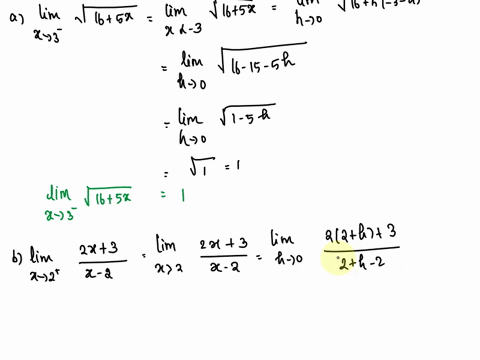 a) lim x→3⁻ √(16+5x) = lim x<-3 √(16+5x) = lim h→0
= lim h→0 √(16-15-5h)
= lim h→0 √(1-5h)
= √1 = 1
lim x→3⁻ √(16+5x) = 1
b) lim x→2⁺ (2x+3)/(x-2) = lim x>2 (2x+3)/(x-2) = lim h→0 (2(2+h)+3)/(2+h-2)